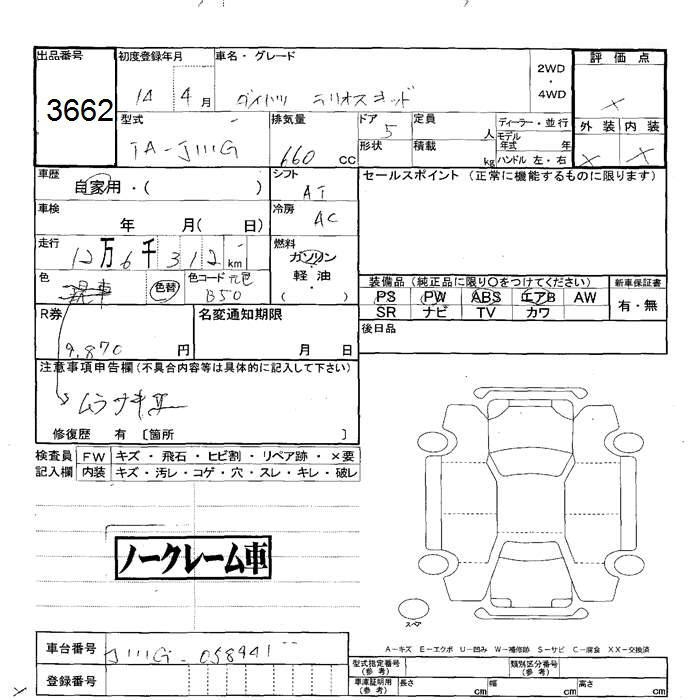 出品番号
3662
初度登録年月
14 4月
車名・グレード
ダイハツ テリオスキッド
2WD
・
4WD
評価点
×
外装 内装
× ×
型式
TA-J111G
排気量
660 CC
ドア 5
形状
定員 人
積載 kg
ディーラー・並行
モデル年式 年
ハンドル 左・右
車歴
自家用・( )
シフト
AT
セールスポイント (正常に機能するものに限ります)
車検
年 月( 日)
冷房
AC
走行
12万6千312 km
燃料
ガソリン
軽・油
( )
色
現車
色替
色コード 元色
B50
装備品 (純正品に限り〇をつけてください)
PS PW ABS エアB AW
SR ナビ TV カワ
新車保証書
有・無
R券
9,870 円
名変通知期限
月 日
後日品
注意事項申告欄(不具合内容等は具体的に記入して下さい)
ムラサキ
修復歴 有 〔箇所 〕
検査員記入欄
FW キズ・飛石・ヒビ割・リペア跡・×要
内装 キズ・汚レ・コゲ・穴・スレ・キレ・破レ
ノークレーム車
スペア
A-キズ E-エクボ U-凹み W-補修跡 S-サビ C-腐食 XX-交換済
車台番号
J111G-058941
登録番号
型式指定番号(参考)
類別区分番号(参考)
車庫証明用(参考)
長さ cm 幅 cm 高さ cm